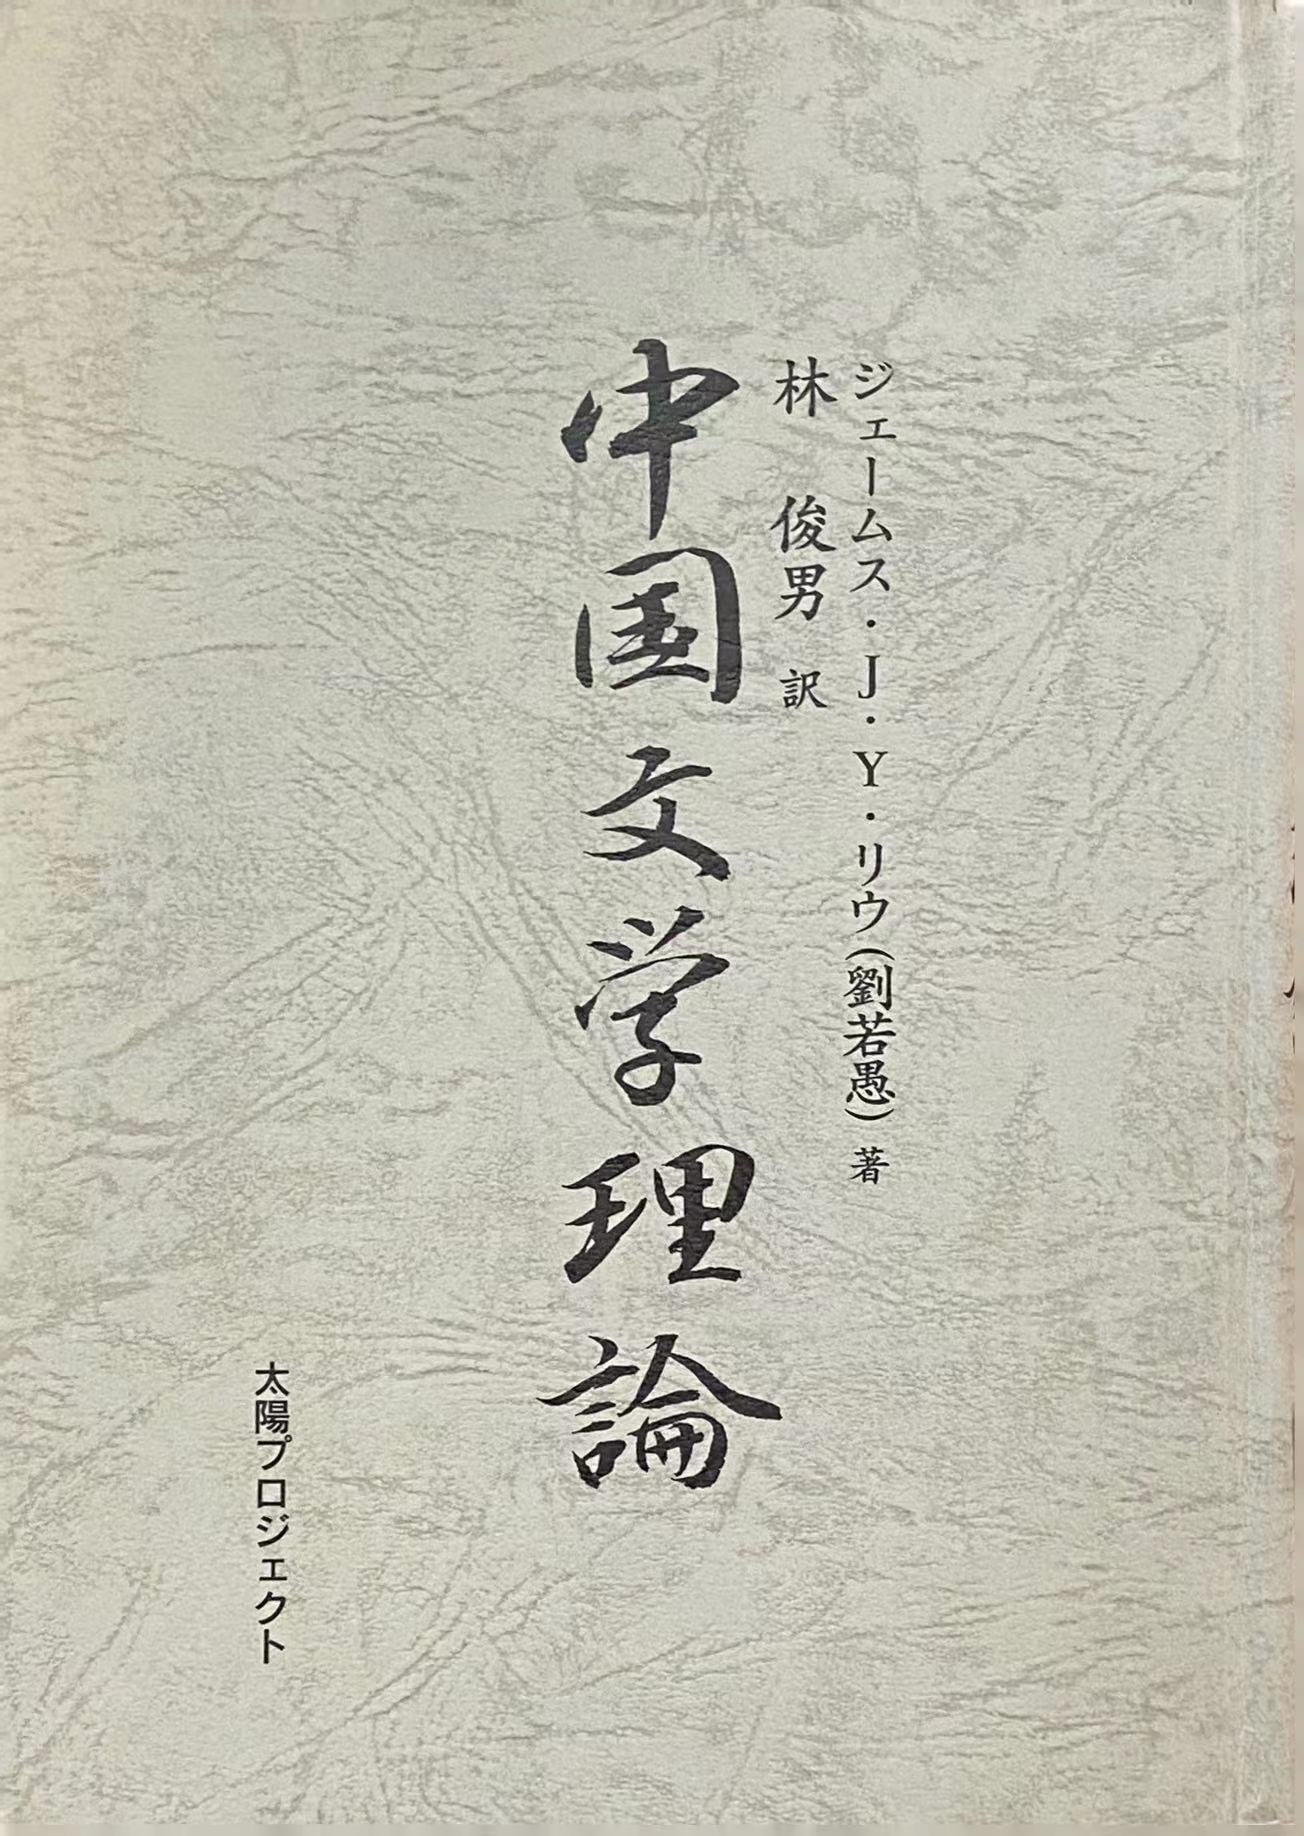 ジェームス・J・Y・リウ(劉若愚) 著
林 俊男 訳
中国文学理論
太陽プロジェクト